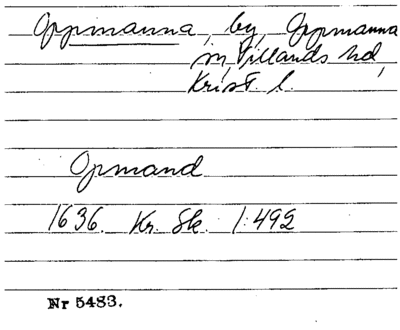 Oppmanna, by, Oppmanna
sn, Villands hd,
Krist. l.
Opmand
1636. Kr. Sk. 1:492
Nr 5483.